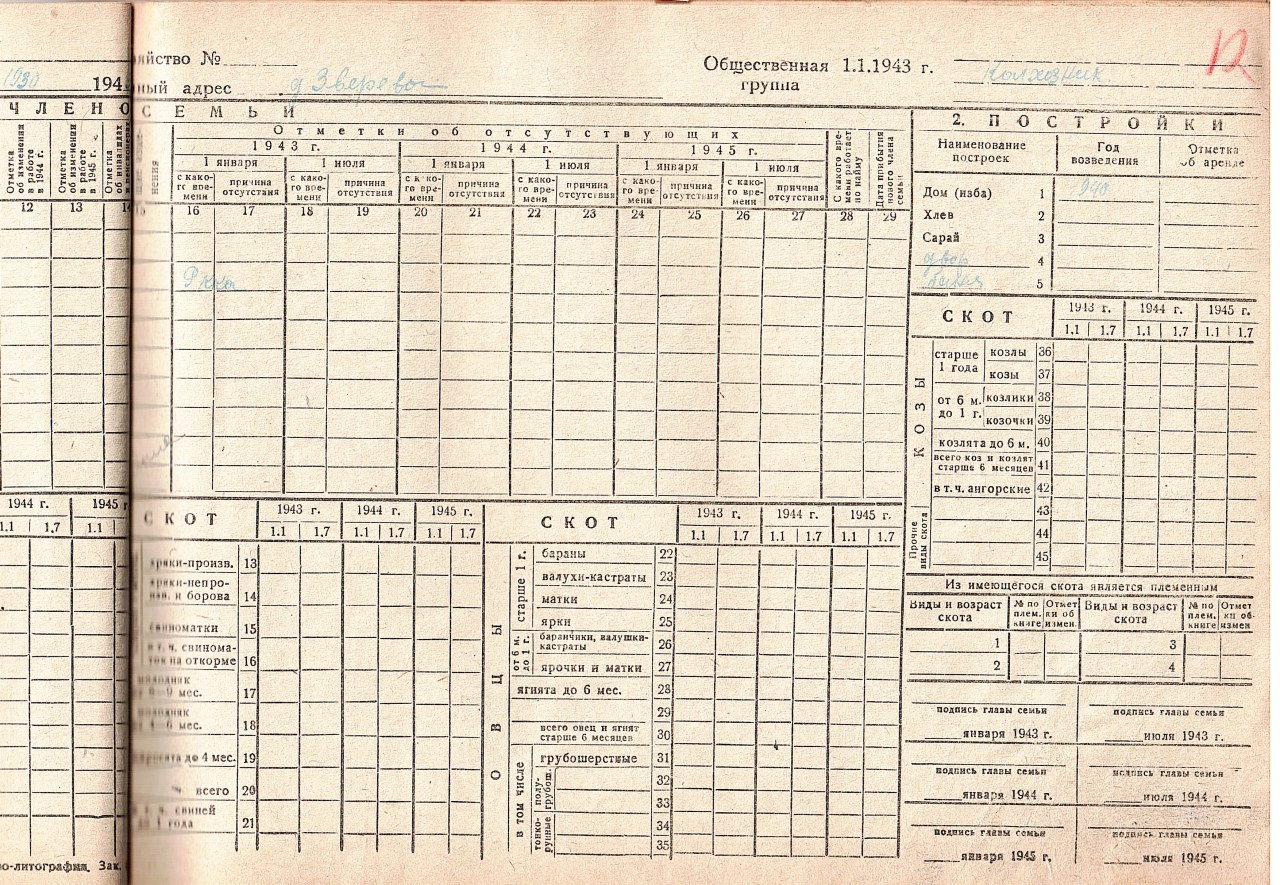 яйство №
Общественная 1.1.1943 г.
группа
Колхозник
12
1930 194
ный адрес д Зверево
ЧЛЕНО
СЕМЬИ
Отметки об отсутствующих
1943 г. 1944 г. 1945 г.
1 января 1 июля 1 января 1 июля 1 января 1 июля
Отметка об изменении в работе в 1944 г.
Отметка об изменении в работе в 1945 г.
Отметка об инвалидах
с како-го вре-мени причина отсутствия с како-го вре-мени причина отсутствия с како-го вре-мени причина отсутствия с како-го вре-мени причина отсутствия с како-го вре-мени причина отсутствия с како-го вре-мени причина отсутствия
С какого вре-мени работает по найму
Дата прибытия нового члена семьи
12 13 14 15 16 17 18 19 20 21 22 23 24 25 26 27 28 29
Ркка
2. ПОСТРОЙКИ
Наименование построек Год возведения Отметка об аренде
Дом (изба) 1 940
Хлев 2
Сарай 3
двор 4
баня 5
СКОТ 1943 г. 1944 г. 1945 г.
1.1 1.7 1.1 1.7 1.1 1.7
КОЗЫ
старше 1 года
козлы 36
козы 37
от 6 м. до 1 г.
козлики 38
козочки 39
козлята до 6 м. 40
всего коз и козлят старше 6 месяцев 41
в т. ч. ангорские 42
Прочие виды скота
43
44
45
1944 г. 1945 г
1.1 1.7 1.1
СКОТ 1943 г. 1944 г. 1945 г.
1.1 1.7 1.1 1.7 1.1 1.7
ряки-произв. 13
ряки-непро-
и борова 14
свиноматки 15
т. ч. свинома-
на откорме 16
мес. 17
мес. 18
до 4 мес. 19
всего 20
т. ч. свиней
года 21
СКОТ 1943 г. 1944 г. 1945 г.
1.1 1.7 1.1 1.7 1.1 1.7
ОВЦЫ
старше 1 г.
бараны 22
валухи-кастраты 23
матки 24
ярки 25
от 6 м. до 1 г.
баранчики, валушки-кастраты 26
ярочки и матки 27
ягнята до 6 мес. 28
29
всего овец и ягнят старше 6 месяцев 30
в том числе
грубошерстные 31
полу-грубош.
32
33
тонко-рунные
34
35
Из имеющегося скота является племенным
Виды и возраст скота № по плем. книге Отметки об измен. Виды и возраст скота № по плем. книге Отметки об измен
1 3
2 4
подпись главы семьи подпись главы семьи
января 1943 г. июля 1943 г.
подпись главы семьи подпись главы семьи
января 1944 г. июля 1944 г.
подпись главы семьи подпись главы семьи
января 1945 г. июля 1945 г.
о-литография. Зак.